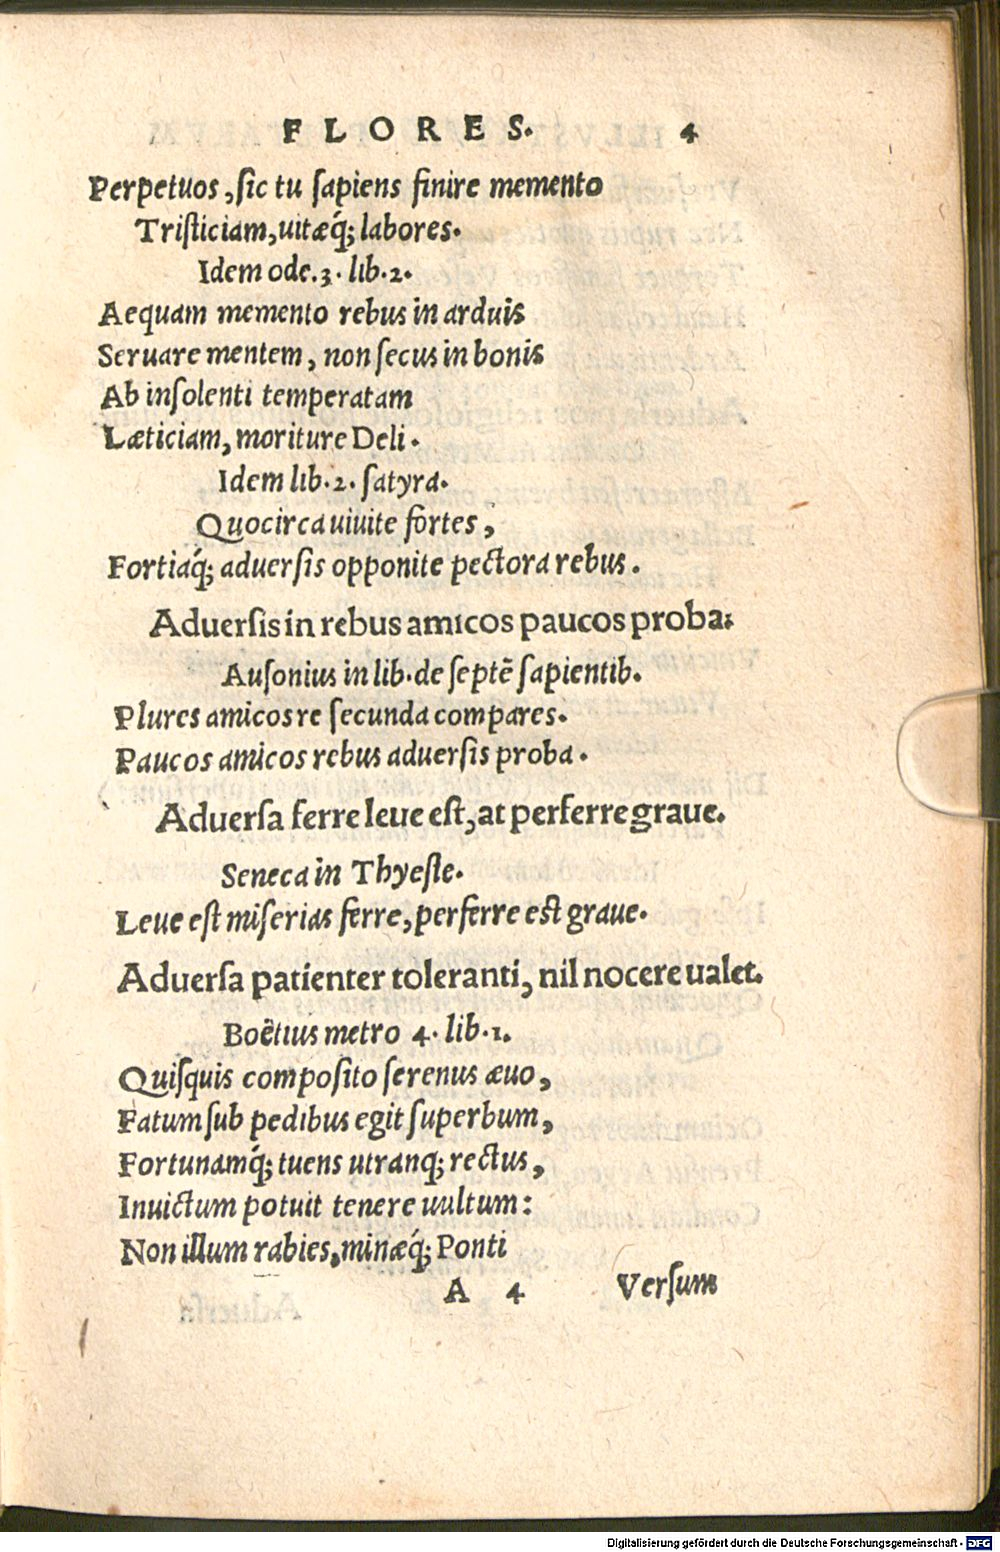 FLORES. 4
Perpetuos, sic tu sapiens finire memento
Tristiciam, uitæq́; labores.
Idem ode.3. lib.2.
Aequam memento rebus in arduis
Seruare mentem, non secus in bonis
Ab insolenti temperatam
Læticiam, moriture Deli.
Idem lib.2. satyra.
Quocirca uiuite fortes,
Fortiaq́; aduersis opponite pectora rebus.
Aduersis in rebus amicos paucos proba:
Ausonius in lib. de septẽ sapientib.
Plures amicos re secunda compares.
Paucos amicos rebus aduersis proba.
Aduersa ferre leue est, at perferre graue.
Seneca in Thyeste.
Leue est miserias ferre, perferre est graue.
Aduersa patienter toleranti, nil nocere ualet.
Boëtius metro 4. lib.1.
Quisquis composito serenus æuo,
Fatum sub pedibus egit superbum,
Fortunamq́; tuens utranq; rectus,
Inuictum potuit tenere uultum:
Non illum rabies, minæq́; Ponti
A 4 Versum
Digitalisierung gefördert durch die Deutsche Forschungsgemeinschaft - DFG